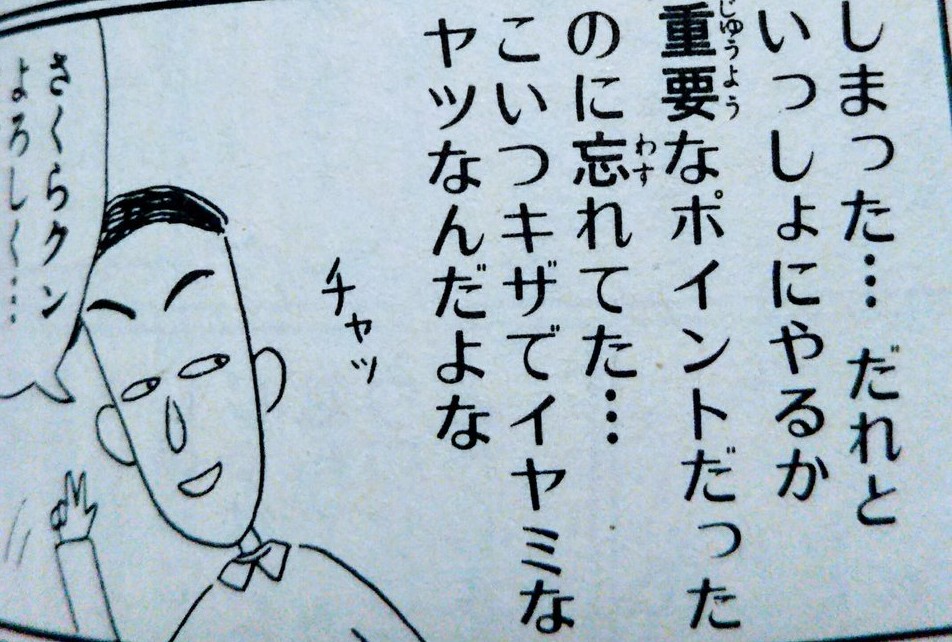 しまった… だれと
いっしょにやるか
重要なポイントだった
のに忘れてた…
こいつキザでイヤミな
ヤツなんだよな
じゅうよう
わす
チャッ
さくらクン
よろしく…